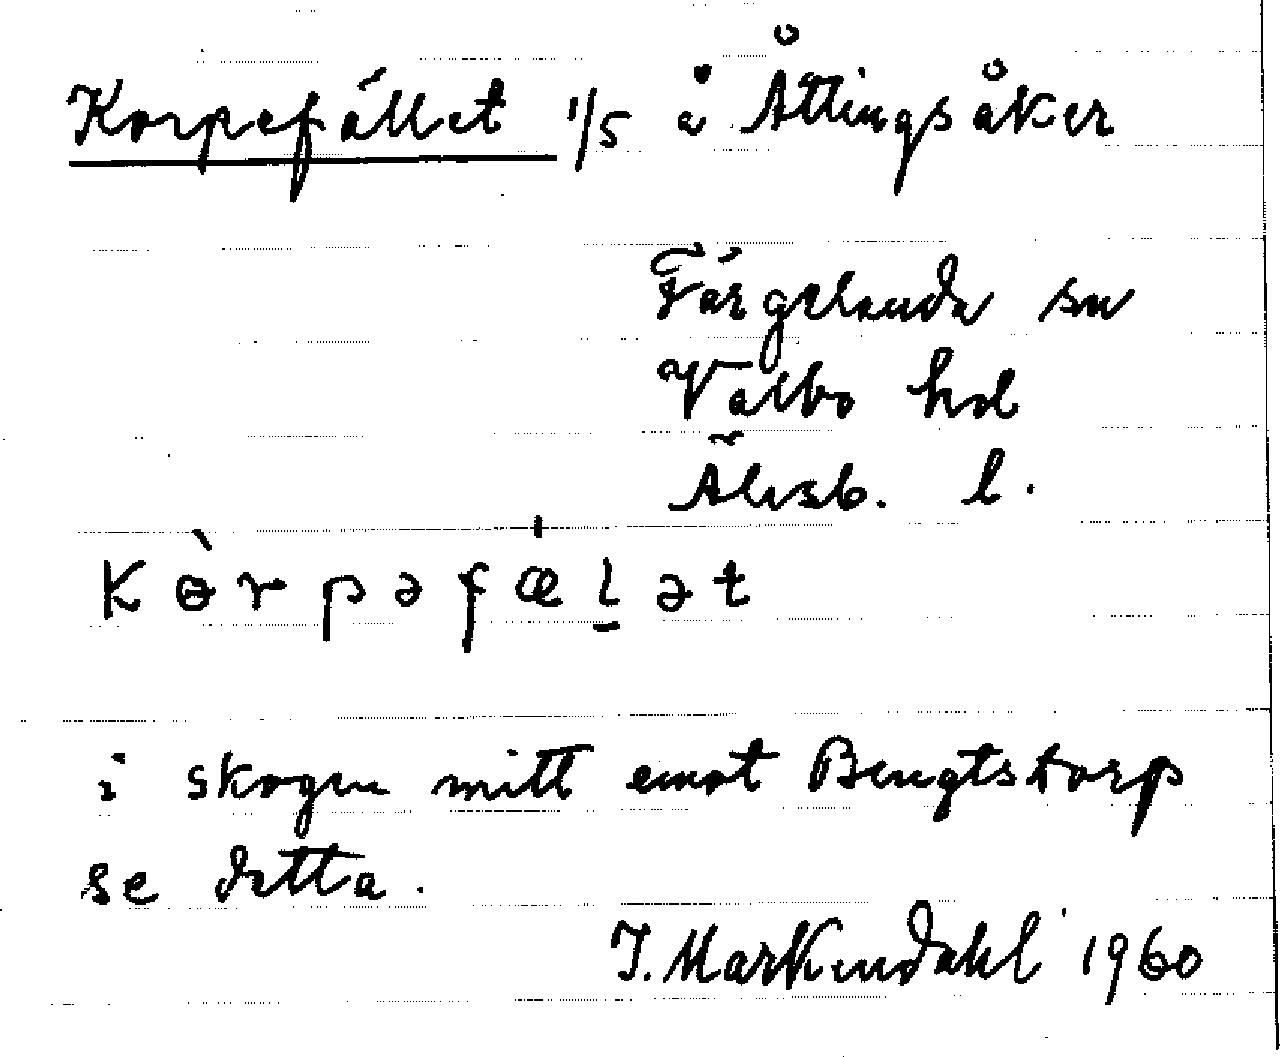 Korpefället 1/5 å Åttingsåker
Färgelanda sn
Valbo hd
Älvsb. l.
Kɵ̀rpəfæ̍l̠ət
i skogen mitt emot Bengtstorp
se detta.
J. Markendahl 1960